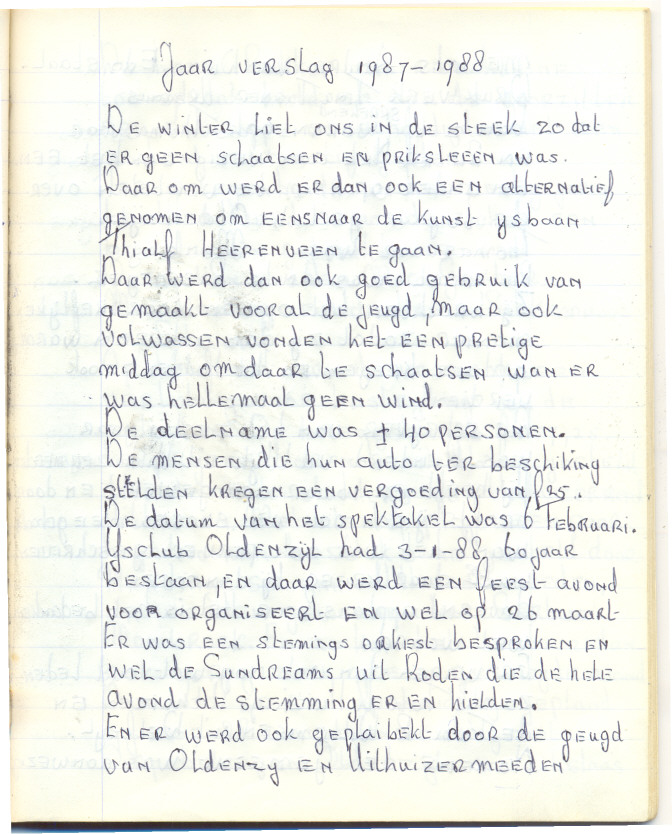 Jaar verslag 1987-1988
De winter liet ons in de steek zo dat
er geen schaatsen en priksleeën was.
Daar om werd er dan ook een alternatief
genomen om eensnaar de kunst ysbaan
Thialf Heerenveen te gaan.
Daar werd dan ook goed gebruik van
gemaakt vooral de jeugd, maar ook
volwassen vonden het een pretige
middag om daar te schaatsen wan er
was hellemaal geen wind.
De deelname was ± 40 personen.
De mensen die hun auto ter beschiking
stelden kregen een vergoeding van f 25.-
De datum van het spektakel was 6 Februari.
Ysclub Oldenzijl had 3-1-88, 60 jaar
bestaan, en daar werd een feest avond
voor organiseert en wel op 26 maart
Er was een stemings orkest besproken en
wel de Sundreams uit Roden die de hele
avond de stemming er en hielden.
En er werd ook geplaibekt door de geugd
van Oldenzy en Uithuizermeeden